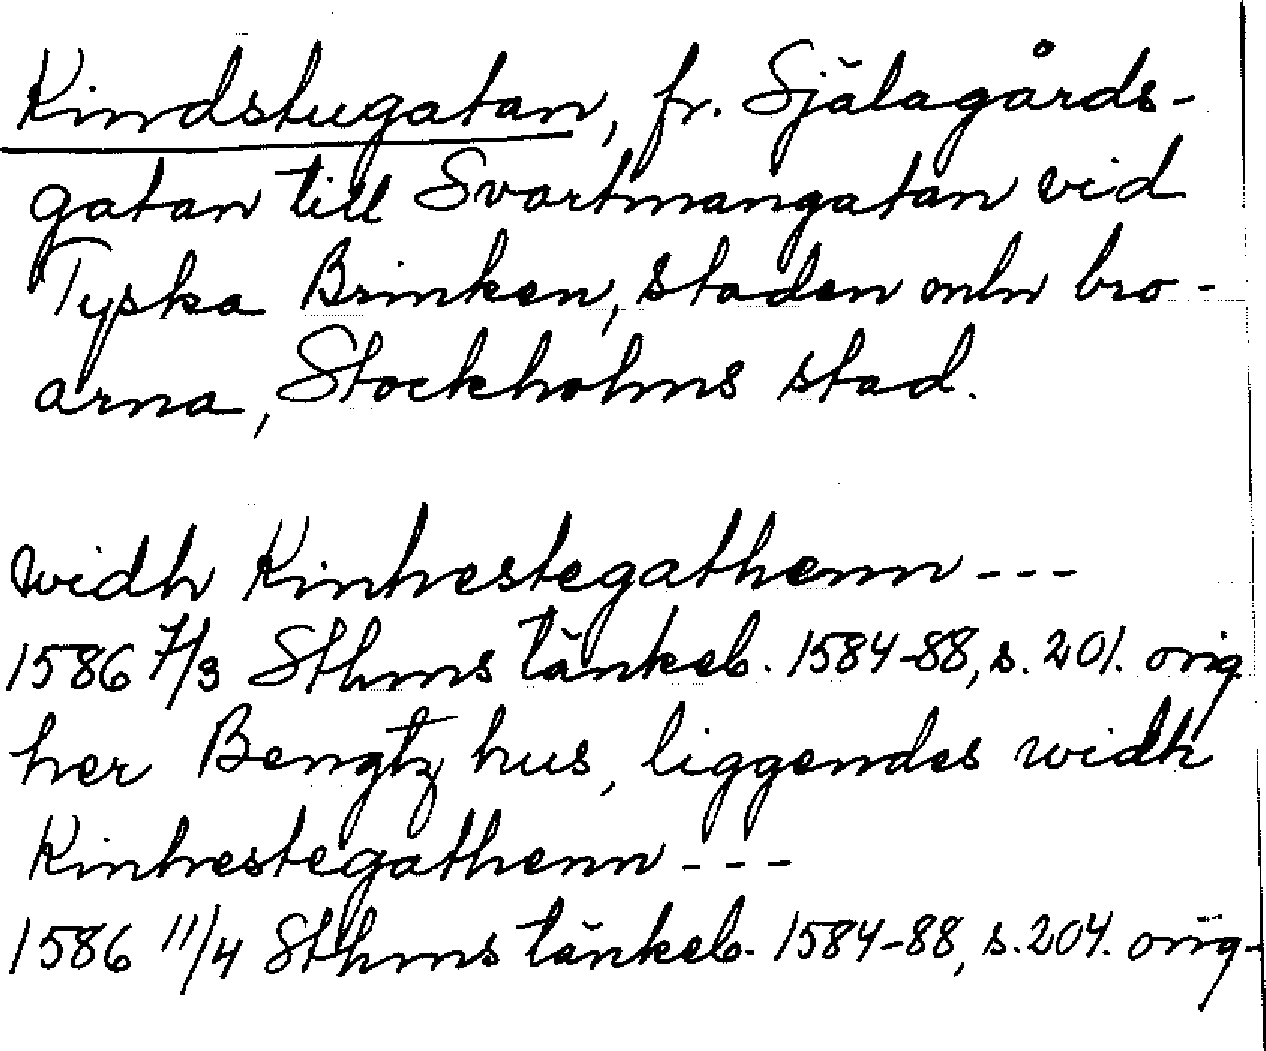 Kindstugatan, fr. Själagårds-
gatan till Svartmangatan vid
Tyska Brinken, staden mln bro-
arna, Stockholms stad.
widh Kinhestegathenn ---
1586 7/3 Sthms tänkeb. 1584-88, s. 201. orig.
her Bengtz hus, liggendes widh
Kinhestegathenn ---
1586 11/4 Sthms tänkeb. 1584-88, s. 204. orig.